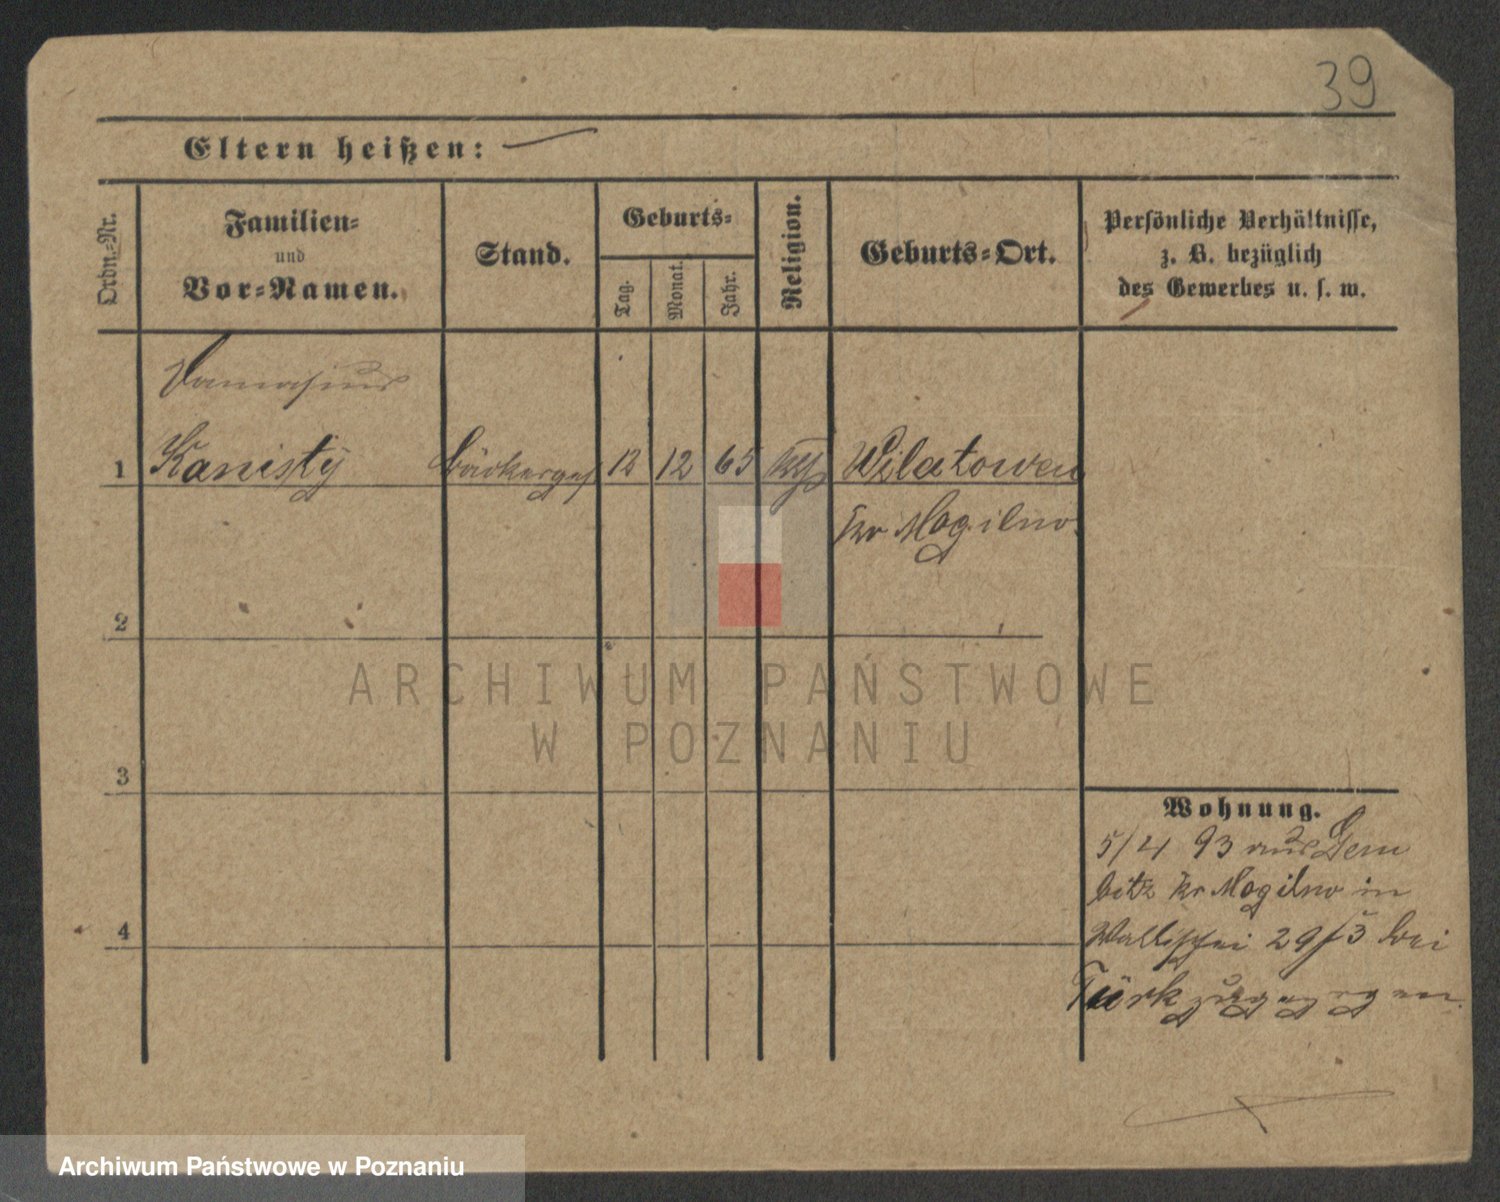 39
Eltern heißen: —
Ordn.-Nr.
Familien-
und
Vor-Namen.
Stand.
Geburts-
Tag.
Monat.
Jahr.
Religion.
Geburts-Ort.
Persönliche Verhältnisse,
z. B. bezüglich
des Gewerbes u. s. w.
1
Kanisty
Bäckerges
12
12
65
Wilatowen
Kr Mogilno.
2
3
4
Wohnung.
5/4 93 aus Gem
bitz Kr Mogilno in
Wallischei 29/3 bei
Türk zugezogen.
ARCHIWUM PAŃSTWOWE
W POZNANIU
Archiwum Państwowe w Poznaniu